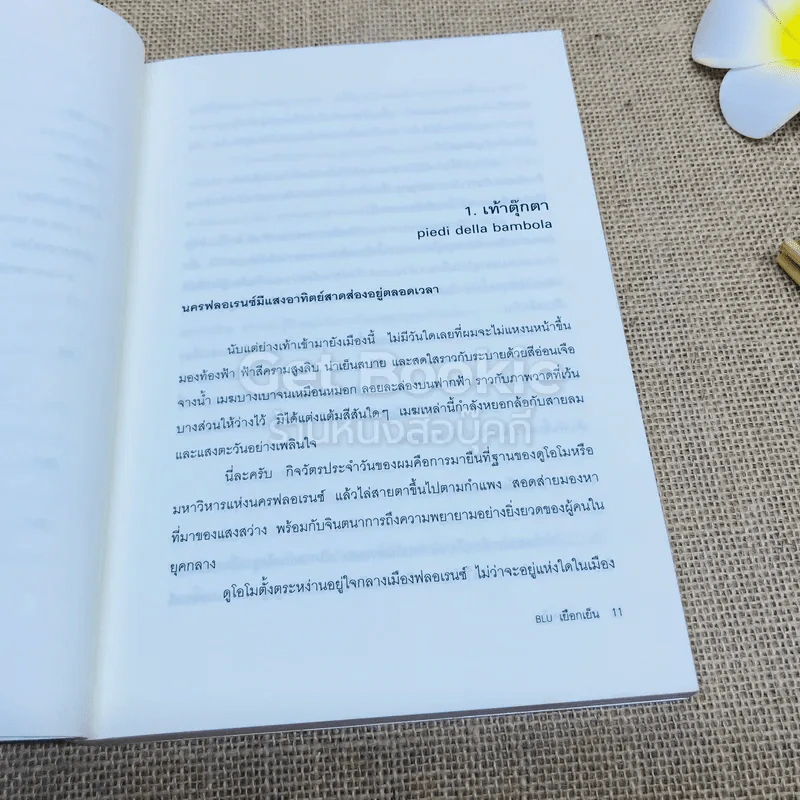 1. เท้าตุ๊กตา
piedi della bambola
นครฟลอเรนซ์มีแสงอาทิตย์สาดส่องอยู่ตลอดเวลา
นับแต่ย่างเท้าเข้ามายังเมืองนี้ ไม่มีวันใดเลยที่ผมจะไม่แหงนหน้าขึ้น
มองท้องฟ้า ฟ้าสีครามสูงลิบ น่าเย็นสบาย และสดใสราวกับระบายด้วยสีอ่อนเจือ
จางน้ำ เมฆบางเบาจนเหมือนหมอก ลอยละล่องบนฟากฟ้า ราวกับภาพวาดที่เว้น
บางส่วนให้ว่างไว้ มิได้แต่งแต้มสีสันใดๆ เมฆเหล่านี้กำลังหยอกล้อกับสายลม
และแสงตะวันอย่างเพลินใจ
Get Bookie
ร้านหนังสือบุ๊คกี้
นี่ละครับ กิจวัตรประจำวันของผมคือการมายืนที่ฐานของดูโอโมหรือ
มหาวิหารแห่งนครฟลอเรนซ์ แล้วไล่สายตาขึ้นไปตามกำแพง สอดส่ายมองหา
ที่มาของแสงสว่าง พร้อมกับจินตนาการถึงความพยายามอย่างยิ่งยวดของผู้คนใน
ยุคกลาง
ดูโอโมตั้งตระหง่านอยู่ใจกลางเมืองฟลอเรนซ์ ไม่ว่าจะอยู่แห่งใดในเมือง
BLU เยือกเย็น 11